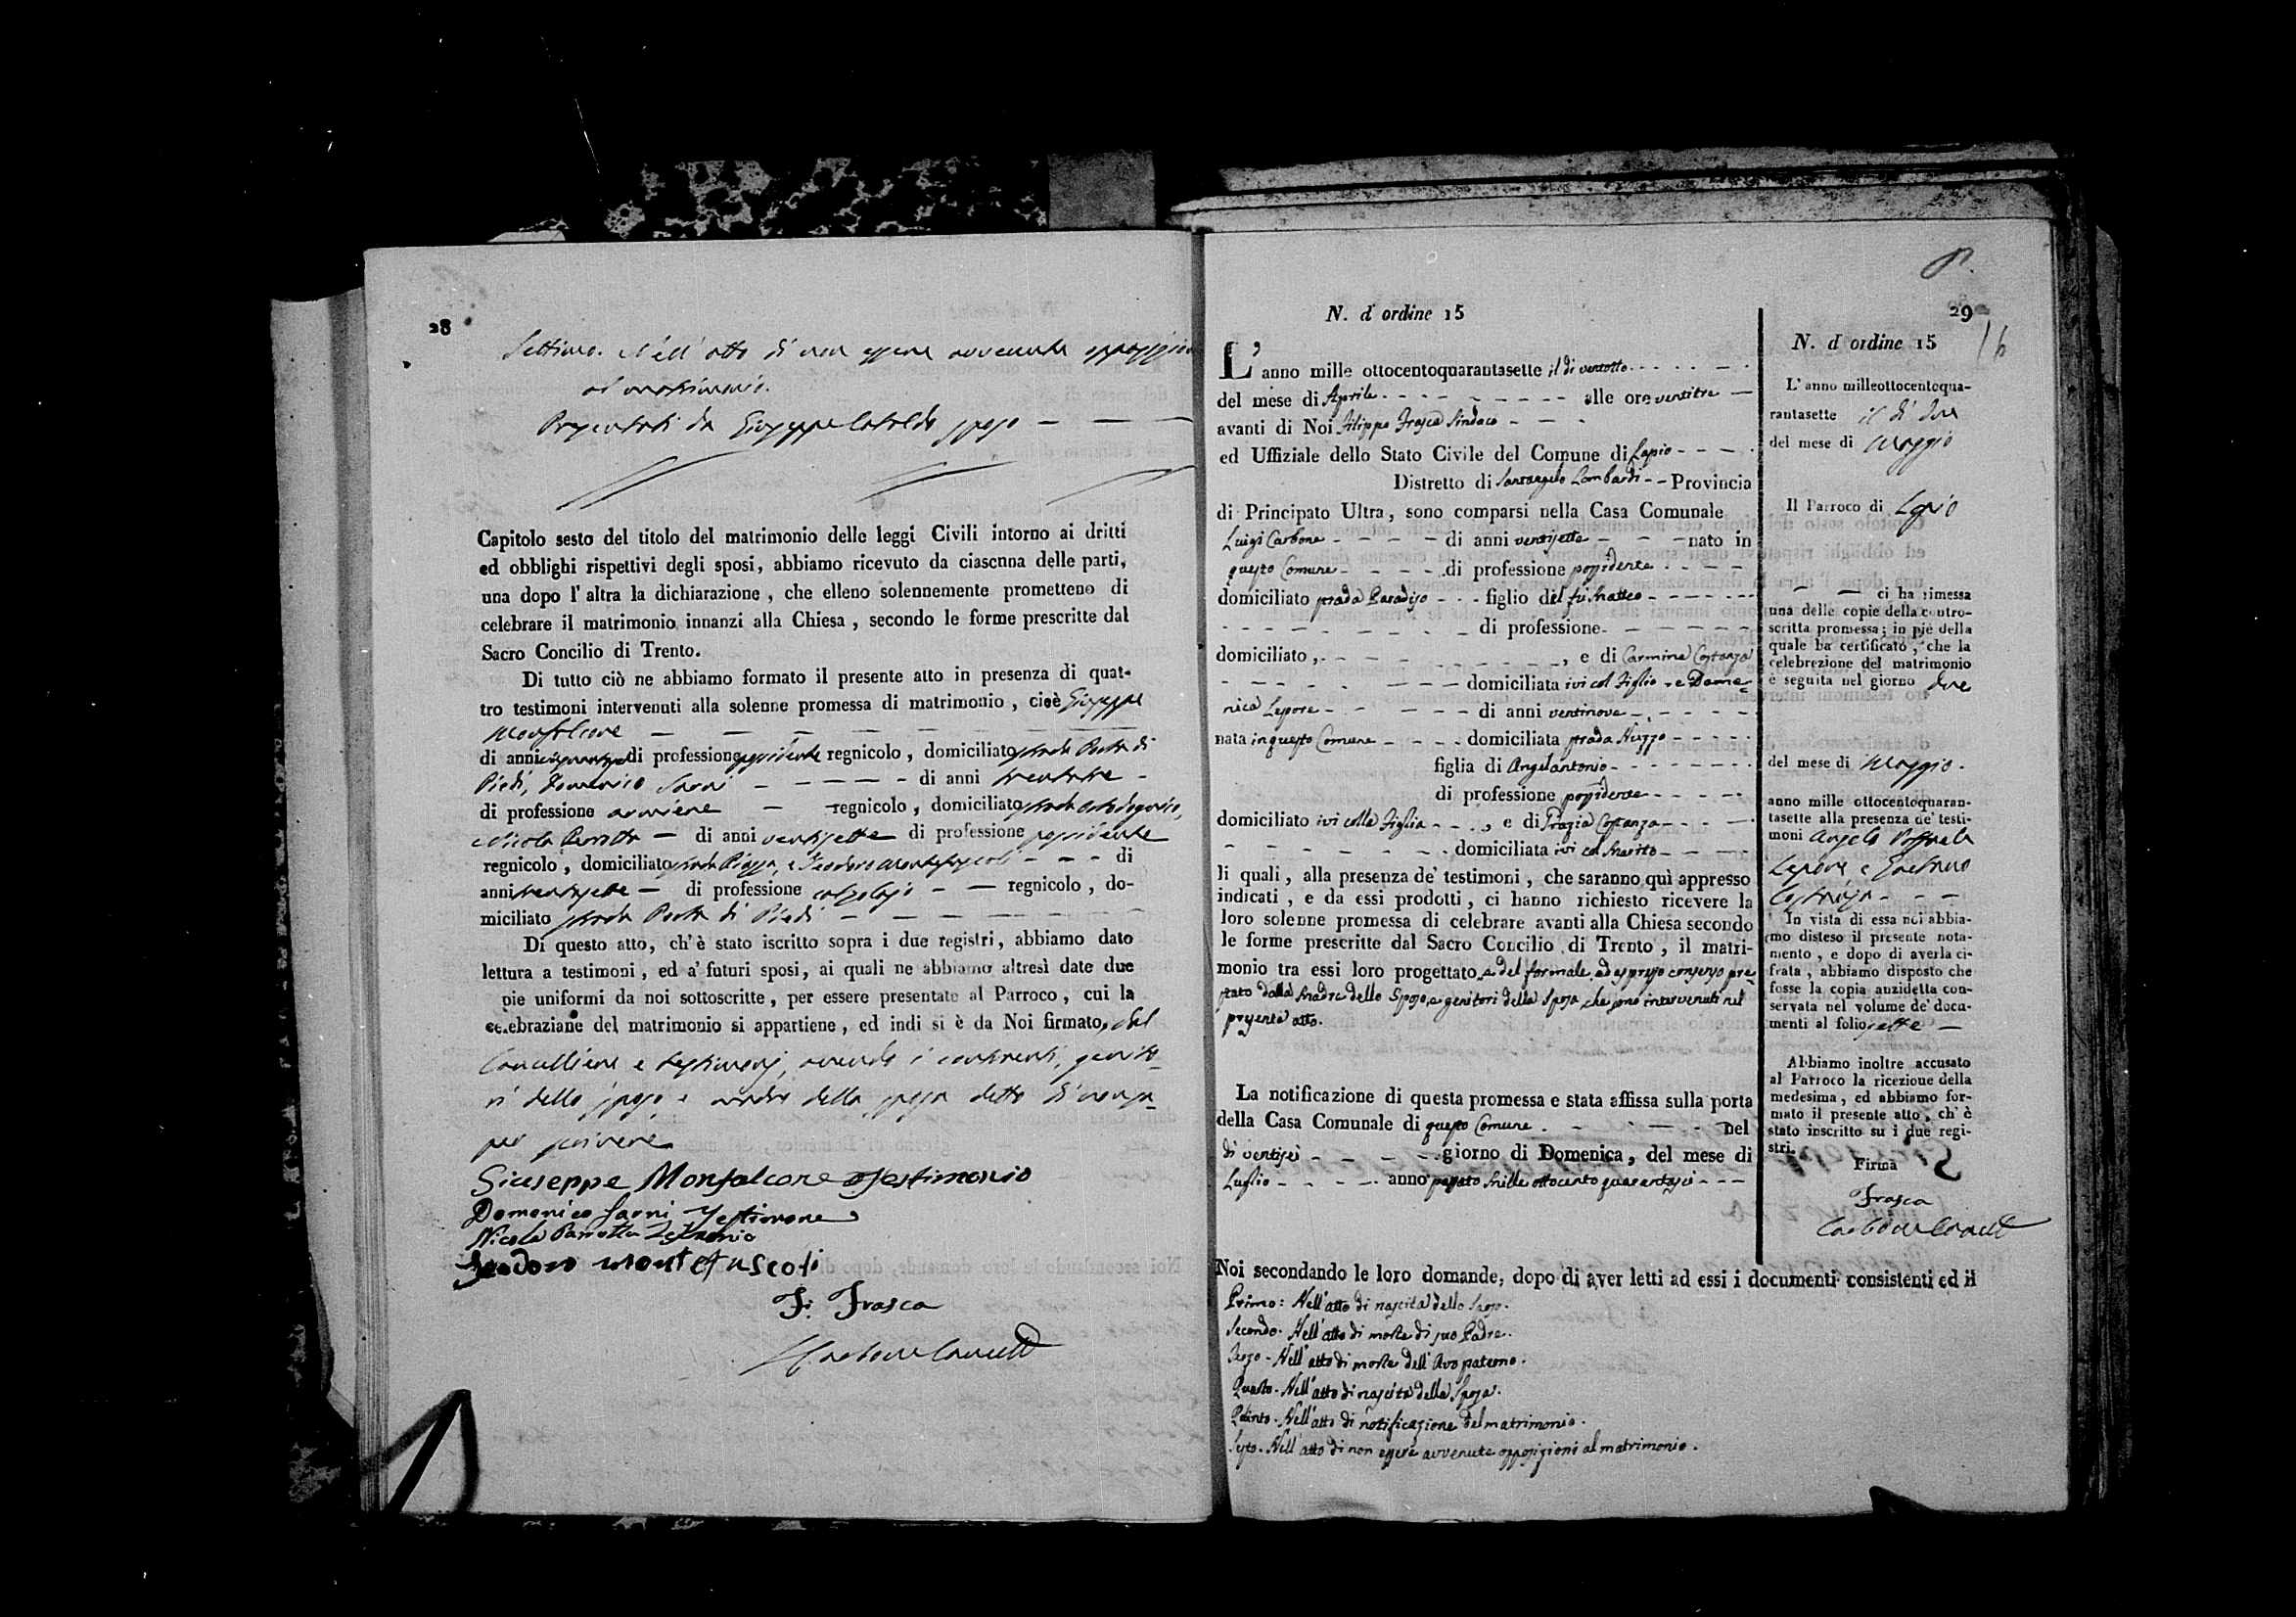 28
Settimo. Nell' atto di non essere avvenute opposizioni
al matrimonio.
Presentati da Giuseppe Cataldo sposo — — —
Capitolo sesto del titolo del matrimonio delle leggi Civili intorno ai dritti
ed obblighi rispettivi degli sposi, abbiamo ricevuto da ciascnna delle parti,
una dopo l' altra la dichiarazione, che elleno solennemente promettono di
celebrare il matrimonio innanzi alla Chiesa, secondo le forme prescritte dal
Sacro Concilio di Trento.
Di tutto ciò ne abbiamo formato il presente atto in presenza di quat-
tro testimoni intervenuti alla solenne promessa di matrimonio, cioè Giuseppe
Monfalcone — — — — —
di anni di professione possidente regnicolo, domiciliato strada Porta di
Piedi, Domenico Sarni — — — — di anni trentatre -
di professione — regnicolo, domiciliato strada
Nicola Parrotta — di anni ventisette di professione possidente
regnicolo, domiciliato strada Piazza, e Teodoro Montefuscoli - - - di
anni trentasette — di professione calzolajo - — regnicolo, do-
miciliato strada Porta di Piedi — — — — —
Di questo atto, ch' è stato iscritto sopra i due registri, abbiamo dato
lettura a testimoni, ed a' futuri sposi, ai quali ne abbiamo altresì date due
pie uniformi da noi sottoscritte, per essere presentate al Parroco, cui la
celebraziane del matrimonio si appartiene, ed indi si è da Noi firmato, dal
Cancelliere e testimonj, avendo i contraenti, genito-
ri dello sposo e madre della sposa detto di non sa-
per scrivere
Giuseppe Monfalcone Testimonio
Domenico Sarni Testimone
Nicola Parrotta Testimonio
Teodoro Montefuscoli
F. Frasca
Carbone Cancell
N. d' ordine 15
29
16
L' anno mille ottocentoquarantasette il di ventotto - - - - - -
del mese di Aprile - - - - - - - - - alle ore ventitre —
avanti di Noi Filippo Frasca Sindaco - - -
ed Uffiziale dello Stato Civile del Comune di Lapio - - - -
Distretto di Santangelo Lombardi - - Provincia
di Principato Ultra, sono comparsi nella Casa Comunale
Luigi Carbone - - - - di anni ventisette - - - nato in
questo Comune - - - - - di professione possidente - - - - -
domiciliato strada Paradiso - - - figlio del fu Matteo - - - - - -
- - - - - - - - - di professione - - - - - -
domiciliato, - - - - - - - - -, e di Carmina Costanza
- - - - - - - - domiciliata ivi col Figlio - e Dome-
nica Lepore - - - - - di anni ventinove - - - - -
nata in questo Comune - - - - domiciliata strada Nuzzo - - - - -
figlia di Angelantonio - - - - - - - -
di professione possidente - - - - -
domiciliato ivi colla Figlia - - -, e di Grazia Costanza - - - -
- - - - - - - domiciliata ivi col Marito - - - -
li quali, alla presenza de' testimoni, che saranno quì appresso
indicati, e da essi prodotti, ci hanno richiesto ricevere la
loro solenne promessa di celebrare avanti alla Chiesa secondo
le forme prescritte dal Sacro Concilio di Trento, il matri-
monio tra essi loro progettato, e del formale, ed espresso consenso pre-
stato dalla Madre dello Sposo, e genitori della Sposa, che sono intervenuti nel
presente atto.
La notificazione di questa promessa e stata affissa sulla porta
della Casa Comunale di questo Comune - - - - — - nel
di ventisei - - - - - giorno di Domenica, del mese di
Luglio - - - - - anno passato Mille ottocento quarantasei - - -
N. d' ordine 15
L' anno milleottocentoqua-
rantasette il dì due
del mese di Maggio
Il Parroco di Lapio
— — ci ha rimessa
una delle copie della contro-
scritta promessa; in piè della
quale ha certificato, che la
celebrezione del matrimonio
è seguita nel giorno due
del mese di Maggio -
anno mille ottocentoquaran-
tasette alla presenza de' testi-
moni Angelo Raffaele
Lepore, e Gaetano
Costanza - - -
In vista di essa noi abbia-
mo disteso il presente nota-
mento, e dopo di averla ci-
frata, abbiamo disposto che
fosse la copia anzidetta con-
servata nel volume de' docu-
menti al folio sette —
Abbiamo inoltre accusato
al Parroco la ricezione della
medesima, ed abbiamo for-
mato il presente atto, ch' è
stato inscritto su i due regi-
stri.
Firma
Frasca
Carbone Cancell
Noi secondando le loro domande, dopo di aver letti ad essi i documenti consistenti ed il
Primo: Nell' atto di nascita dello Sposo.
Secondo. Nell' atto di morte di suo Padre.
Terzo - Nell' atto di morte dell' Avo paterno.
Quarto. Nell' atto di nascita della Sposa.
Quinto. Nell' atto di notificazione del matrimonio.
Sesto. Nell' atto di non essere avvenute opposizioni al matrimonio.